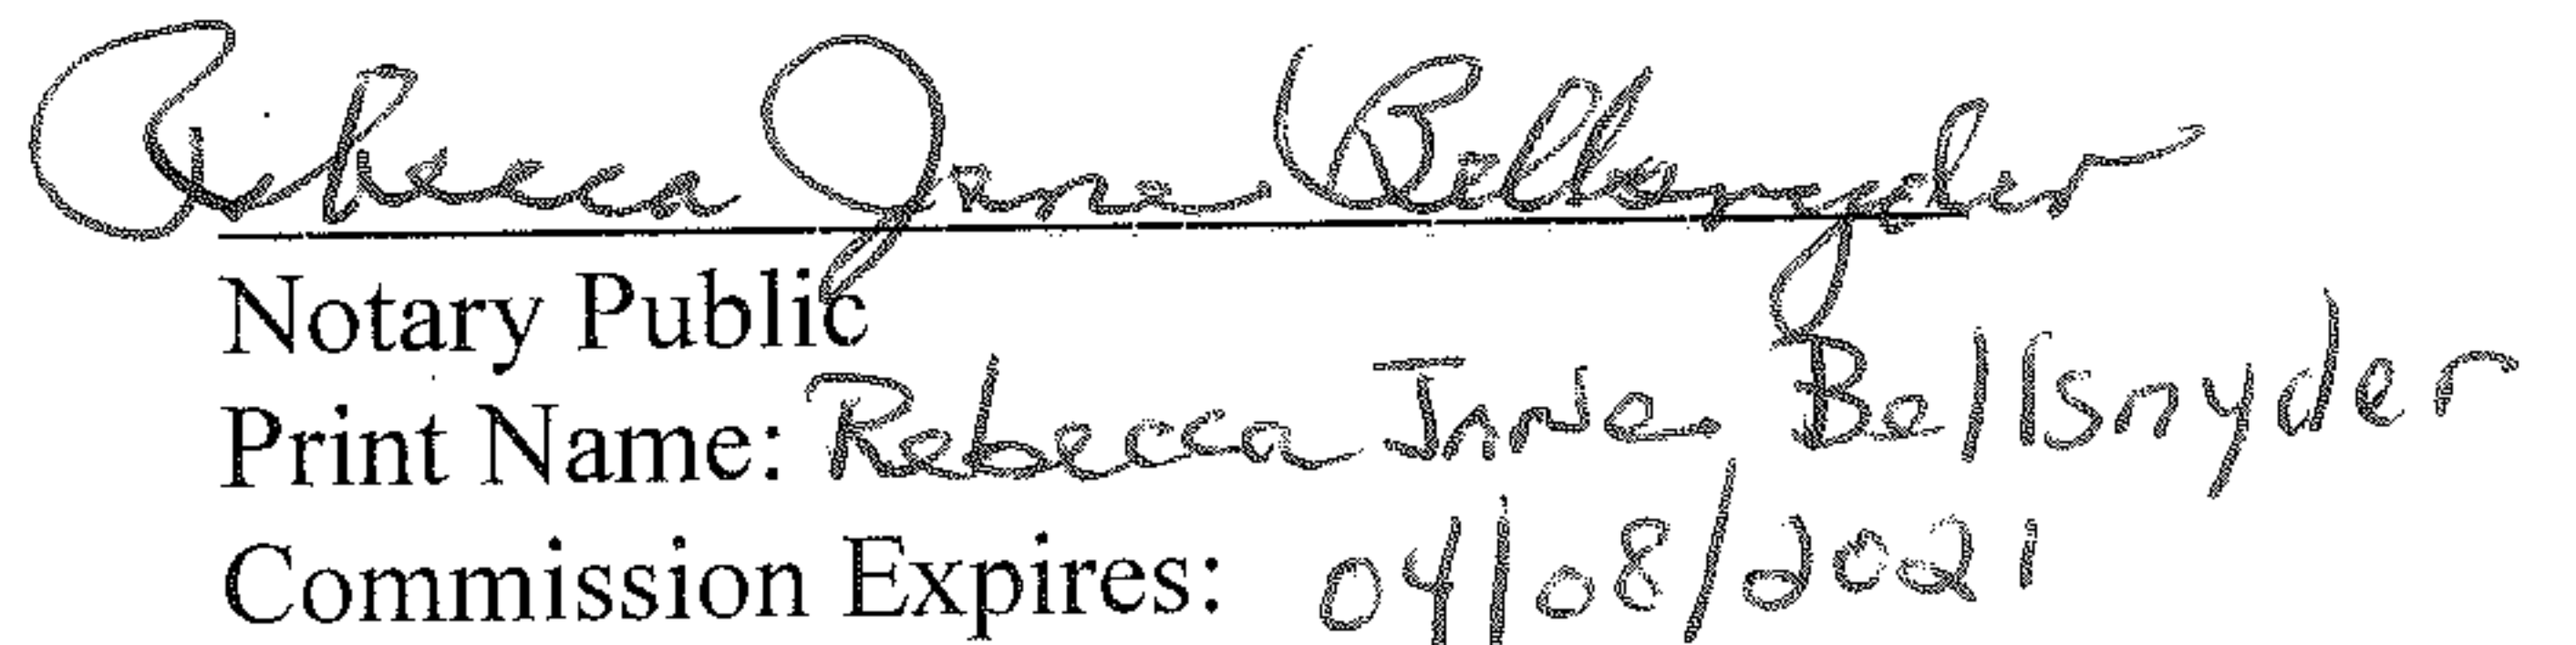 Rebecca Jnne Bellsnyder
Notary Public
Print Name: Rebecca JnNe Bellsnyder
Commission Expires: 04/08/2021